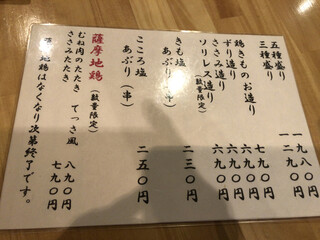 五種盛り 一九八〇円
三種盛り 一二九〇円
鶏きものお造り 七九〇円
ずり造り 六九〇円
ささみ造り 六九〇円
ソリレス造り (数量限定) 六九〇円
きも塩
あぶり(串) 二三〇円
こころ塩
あぶり(串) 二五〇円
薩摩地鶏(数量限定)
むね肉のたたき てっさ風 八九〇円
ささみたたき 七九〇円
薩摩地鶏はなくなり次第終了です。